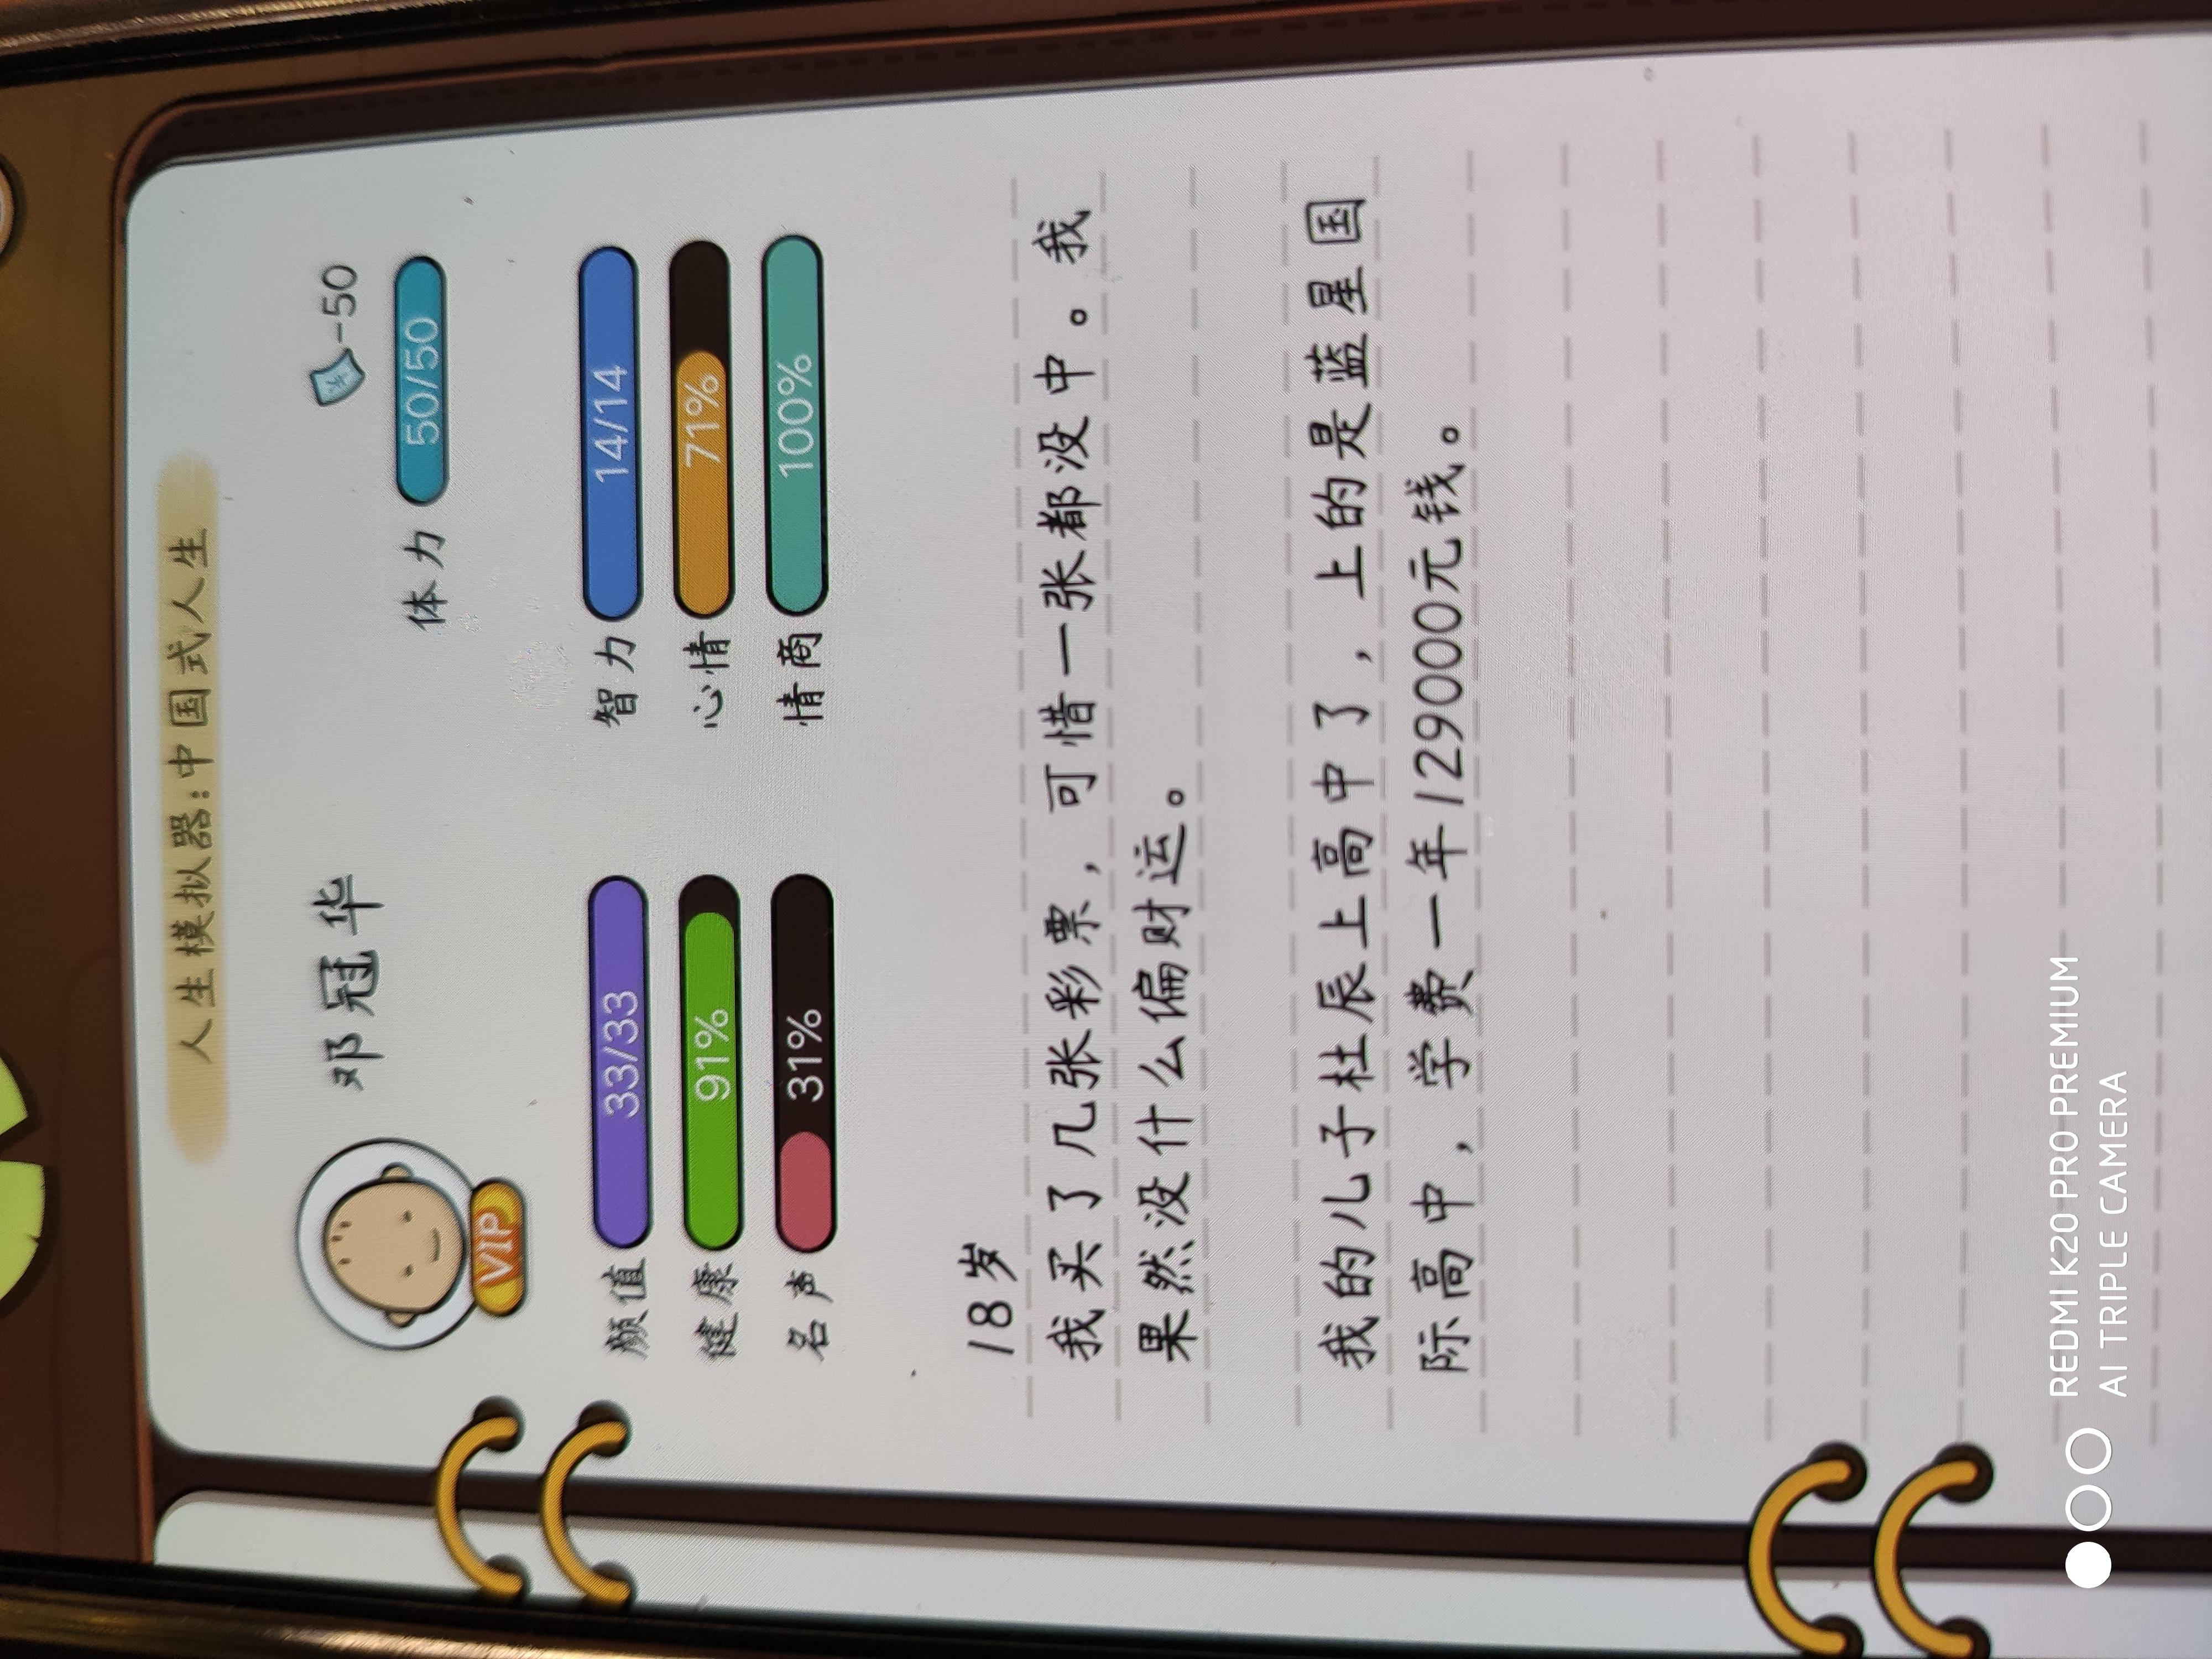 人生模拟器:中国式人生
邓冠华
-50
体力 50/50
VIP
颜值 33/33 智力 14/14
健康 91% 心情 71%
名声 31% 情商 100%
18岁
我买了几张彩票，可惜一张都没中。我
果然没什么偏财运。
我的儿子杜辰上高中了，上的是蓝星国
际高中，学费一年129000元钱。
REDMI K20 PRO PREMIUM
AI TRIPLE CAMERA